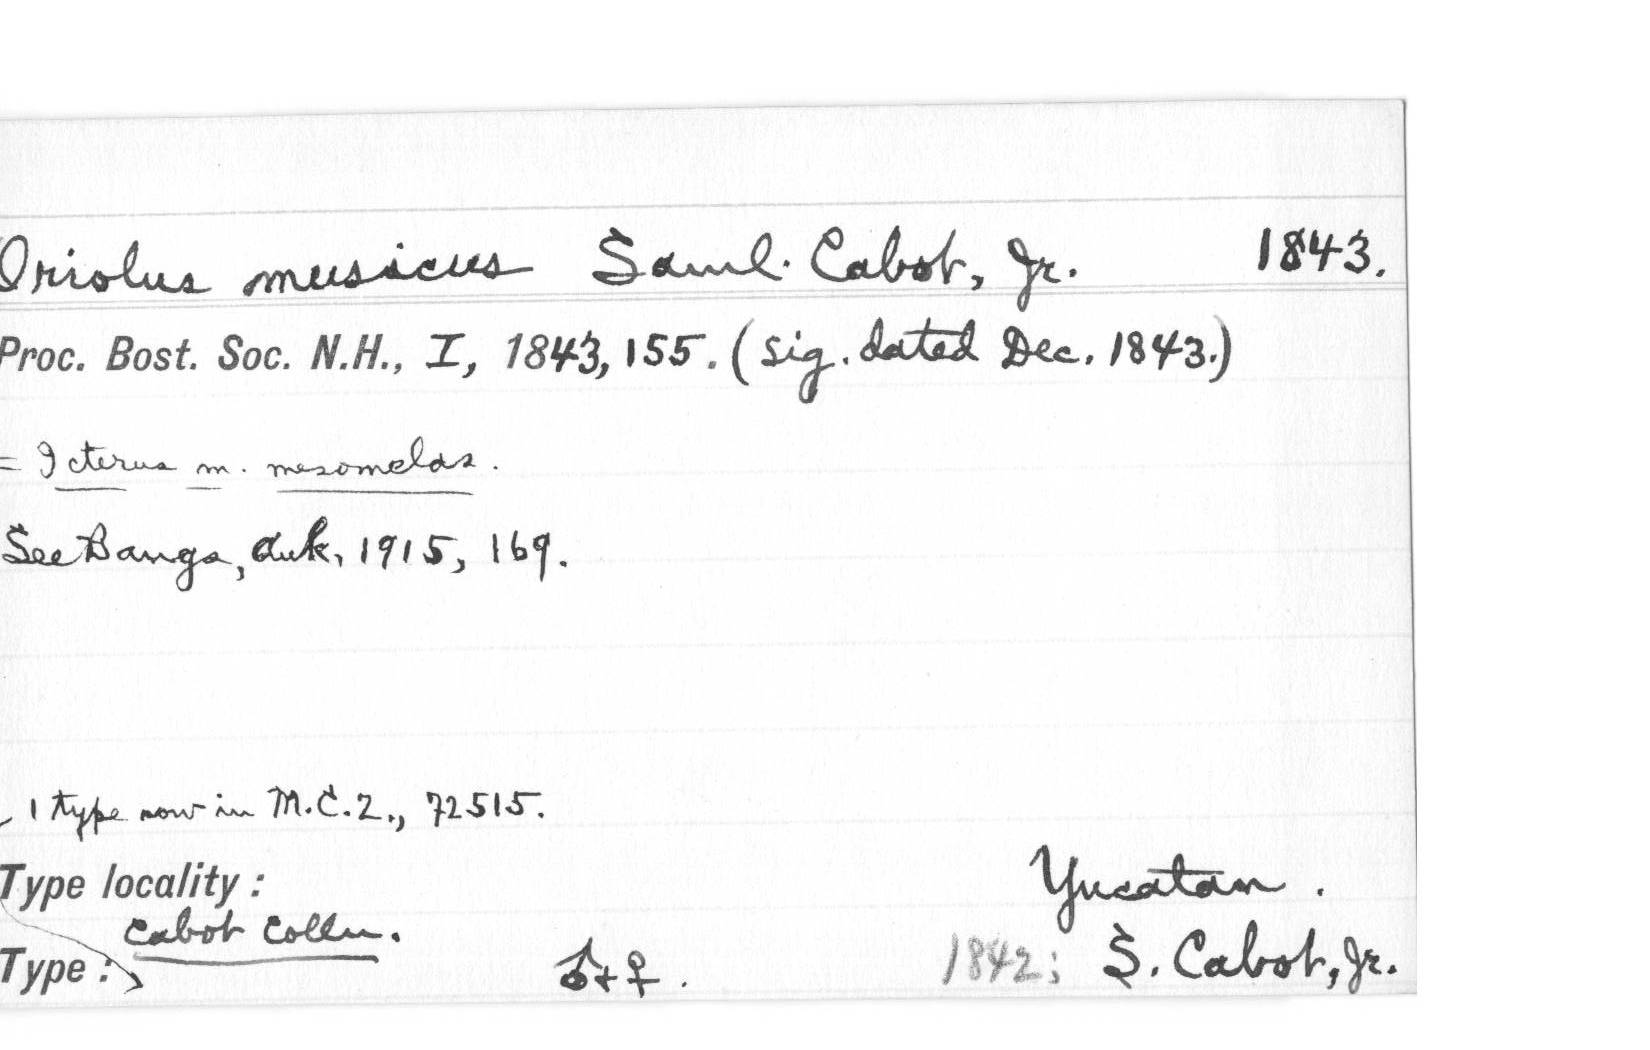 Oriolus musicus Saml. Cabot, Jr. 1843.
Proc. Bost. Soc. N.H., I, 1843, 155. (sig. dated Dec. 1843.)
= Icterus m. mesomelas.
See Bangs, Auk, 1915, 169.
1 type now in M.C.Z., 72515.
Type locality: Yucatan.
Cabot Colln.
Type: ♂+♀. 1842; S. Cabot, Jr.